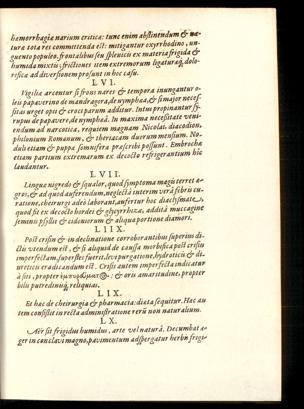 hæmorrhagia narium critica: tunc enim abstinendum & na-
tura tota res committenda est: mitigantur oxyrrhodino, un-
guento populeo, frontalibus seu spleniis ex materia frigida &
humida mixtis: frictiones item extremorum ligaturæq; dolo-
rifica ad diversionem prosunt in hoc casu.
LVI.
Vigiliæ arcentur si frons nares & tempora inungantur o-
leis papaverino de mandragora, de nymphæa, & si major neces-
sitas urget opii & croci parum additur. Intus propinantur sy-
rupus de papavere, de nymphæâ. In maxima necessitate veni-
endum ad narcotica, requiem magnam Nicolai, diacodion,
philonium Romanum, & theriacam duorum mensium. No-
duli etiam & puppa somnifera præscribi possunt. Embrochæ
etiam partium extremarum ex decocto refrigerantium hîc
laudantur.
LVII.
Lingua nigredo & squalor, quod symptoma magis terret æ-
gros, & ad quod auferendum, neglectâ interim verâ febris cu-
ratione, cheirurgi adeò laborant, aufertur hoc diaclysmate,
quod fit ex decocto hordei & glycyrrhizæ, addita muccagine
seminis psyllii & cidoniorum & aliqua portione diamori.
LIIX.
Post crisin & in declinatione corroborantibus superius di-
ctis utendum est, & si aliquid de caussa morbifica post crisin
imperfectam, superstes fuerit, levi purgatione, hydroticis & di-
ureticis eradicandum est. Crisis autem imperfecta indicatur
à siti, propter : & oris amaritudine, propter
bilis putredinis reliquias.
LIX.
Et hæc de cheirurgia & pharmacia: diæta sequitur. Hæc au
tem consistit in recta administratione rerū non naturalium.
LX.
Aër sit frigidus humidus, arte vel naturâ. Decumbat æ-
ger in conclavi magno, pavimentum adspergatur herbis frigi-